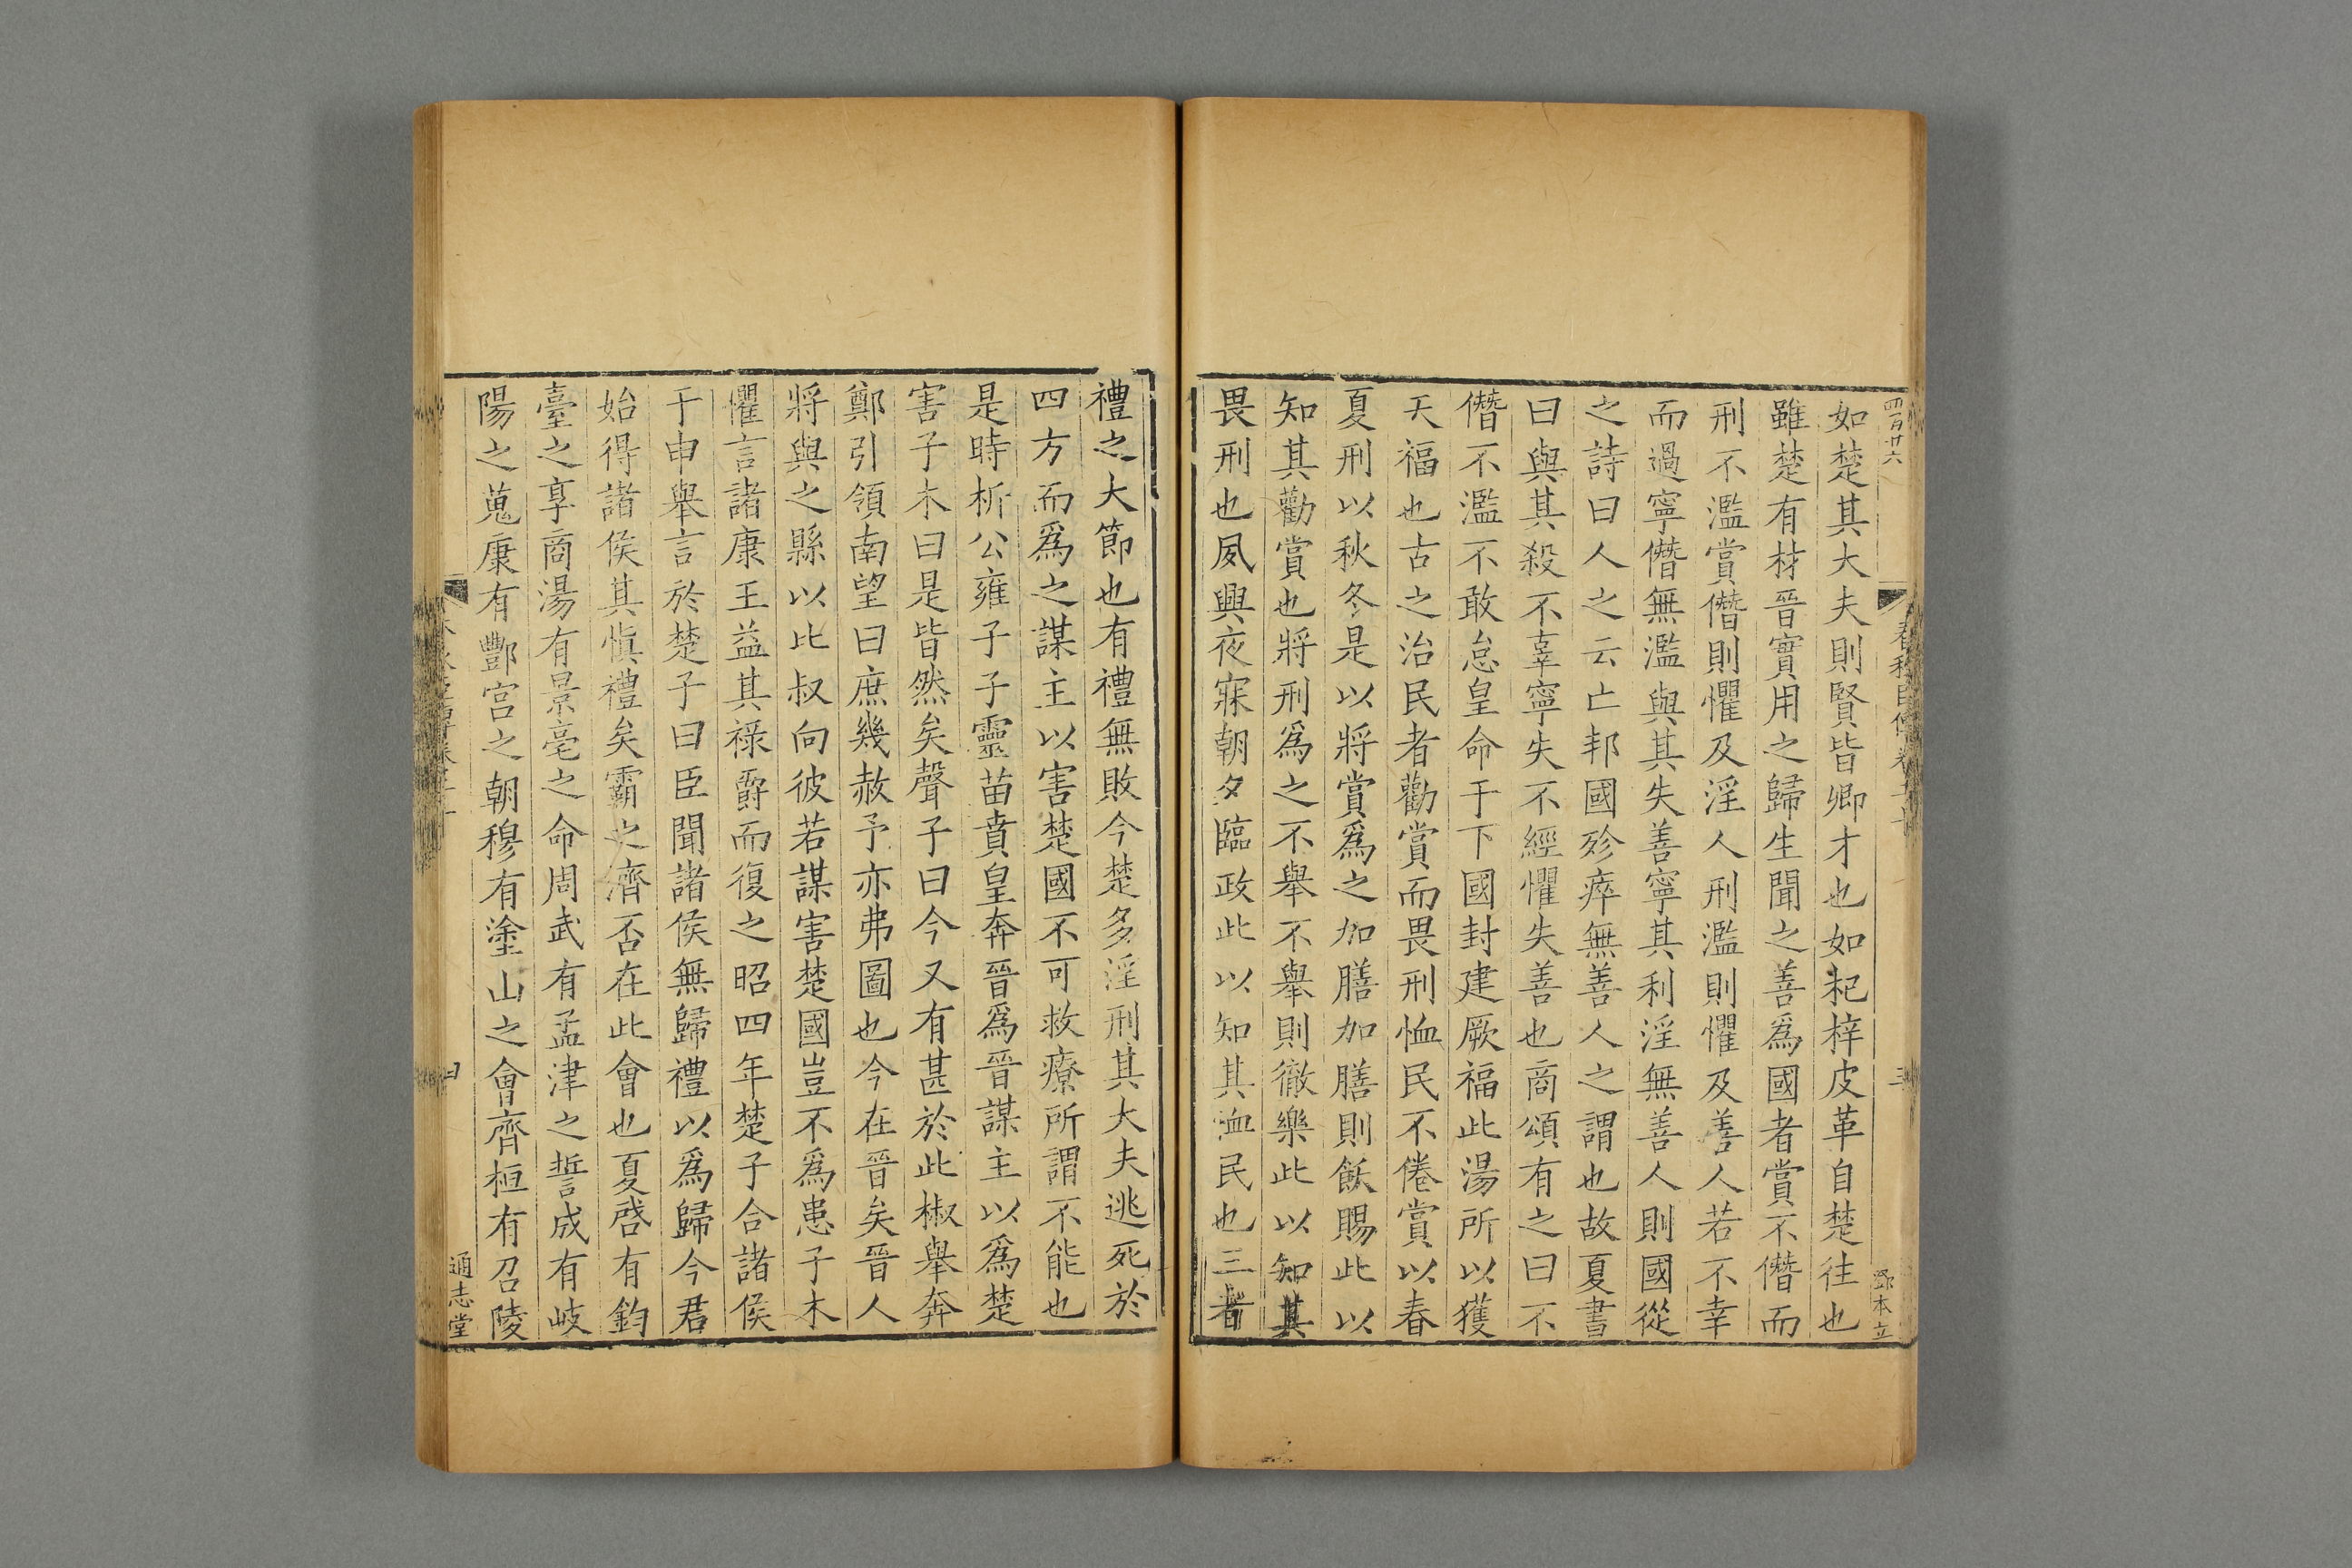 四百廿六
春秋臣傳卷
三
鄧本立
如楚其大夫則賢皆卿才也如杞梓皮革自楚往也
雖楚有材晉實用之歸生聞之善爲國者賞不僭而
刑不濫賞僭則懼及淫人刑濫則懼及善人若不幸
而過寧僭無濫與其失善寧其利淫無善人則國從
之詩曰人之云亡邦國殄瘁無善人之謂也故夏書
曰與其殺不辜寧失不經懼失善也商頌有之曰不
僭不濫不敢怠皇命于下國封建厥福此湯所以獲
天福也古之治民者勸賞而畏刑恤民不倦賞以春
夏刑以秋冬是以將賞爲之加膳加膳則飫賜此以
知其勸賞也將刑爲之不舉不舉則徹樂此以知其
畏刑也夙興夜寐朝夕臨政此以知其恤民也三者
禮之大節也有禮無敗今楚多淫刑其大夫逃死於
四方而爲之謀主以害楚國不可救療所謂不能也
是時析公雍子子靈苗賁皇奔晉爲晉謀主以爲楚
害子木曰是皆然矣聲子曰今又有甚於此椒舉奔
鄭引領南望曰庶幾赦予亦弗圖也今在晉矣晉人
將與之縣以比叔向彼若謀害楚國豈不爲患子木
懼言諸康王益其祿爵而復之昭四年楚子合諸侯
于申舉言於楚子曰臣聞諸侯無歸禮以爲歸今君
始得諸侯其愼禮矣霸之濟否在此會也夏啓有鈞
臺之享商湯有景亳之命周武有孟津之誓成有岐
陽之蒐康有酆宮之朝穆有塗山之會齊桓有召陵
通志堂